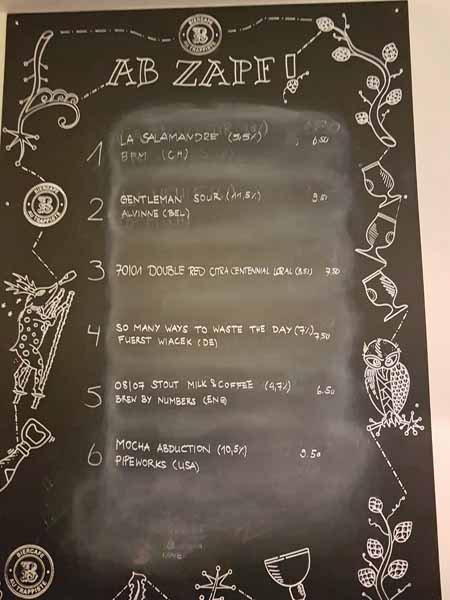 BIERCAFÉ
B
AU TRAPPISTE
AB ZAPF!
1 LA SALAMANDRE (5,5%) 6.50
BFM (CH)
BIERCAFÉ
B
AU TRAPPISTE
2 GENTLEMAN SOUR (11,5%) 9.50
ALVINNE (BEL)
3 70|01 DOUBLE RED CITRA CENTENNIAL LORAL 7.50
4 SO MANY WAYS TO WASTE THE DAY (7%) 7.50
FUERST WIACEK (DE)
5 08|07 STOUT MILK & COFFEE (4,7%) 6.50
BREW BY NUMBERS (ENG)
6 MOCHA ABDUCTION (10,5%) 9.50
PIPEWORKS (USA)
BIERCAFÉ
B
AU TRAPPISTE